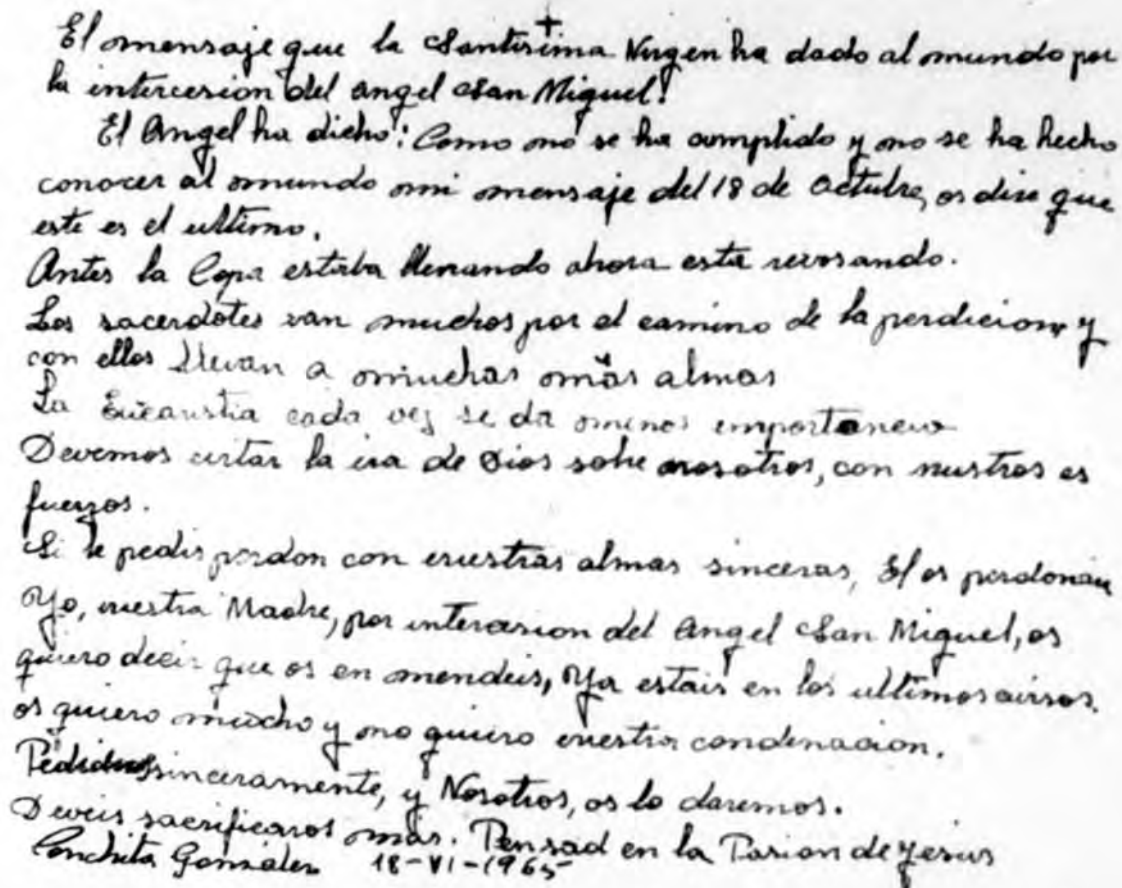 El mensaje que la Santisima Virgen ha dado al mundo por
la intercesion del angel San Miguel!
El Angel ha dicho: Como no se ha cumplido y no se ha hecho
conocer al mundo mi mensaje del 18 de Octubre, os dire que
este es el ultimo.
Antes la Copa estaba llenando ahora está revosando.
Los sacerdotes van muchos por el camino de la perdicion y
con ellos llevan a muchas más almas
La Eucaristia cada vez se da menos importancia
Devemos evitar la ira de Dios sobre nosotros, con nuestros es
fuerzos.
Si le pedis perdon con vuestras almas sinceras, El os perdonará
Yo, vuestra Madre, por intercesion del Angel San Miguel, os
quiero decir que os en mendeis, Ya estais en los ultimos avisos.
os quiero mucho y no quiero vuestra condenacion.
sinceramente, y Nosotros, os lo daremos.
Deveis sacrificaros más. Pensad en la Pasion de Jesus
Conchita Gonzalez 18-VI-1965